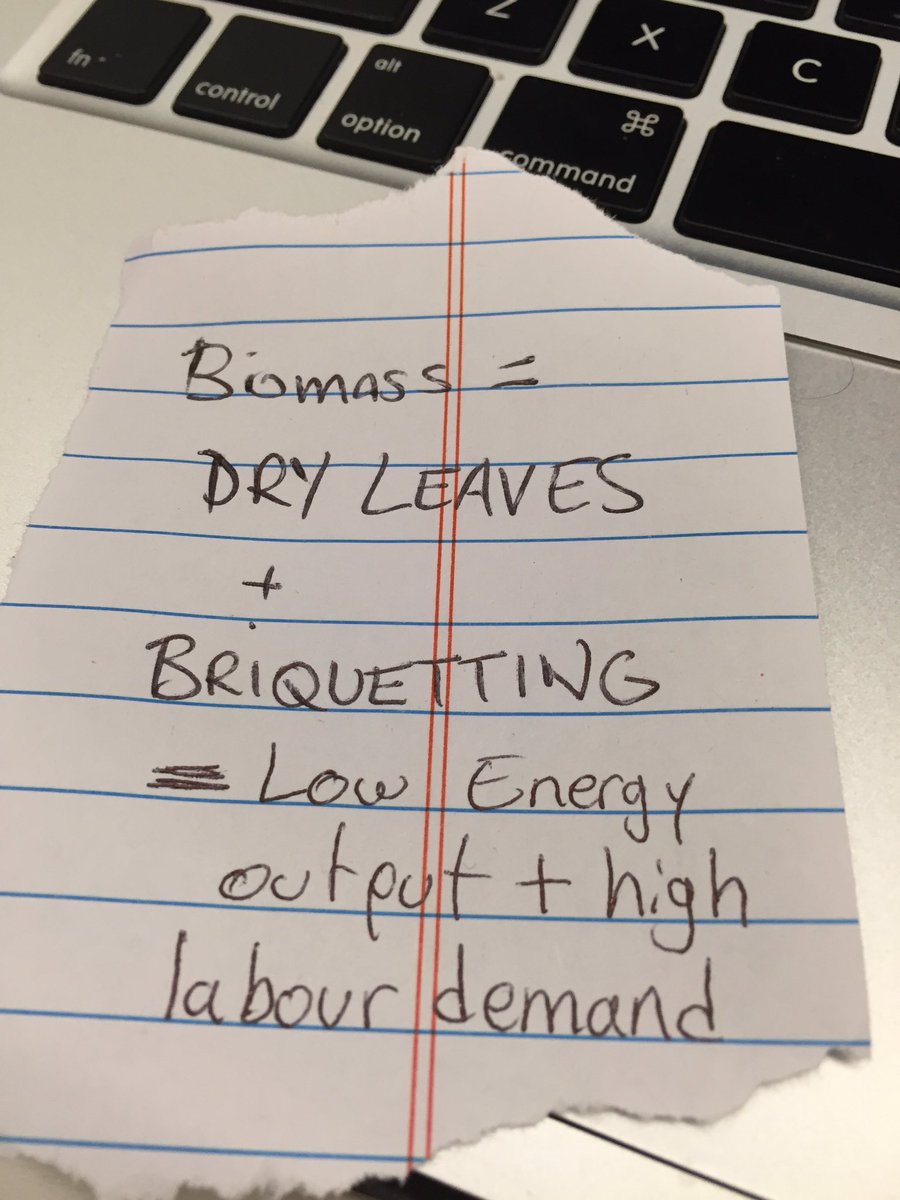 fn
control
alt
option
⌘
command
Z
X
C
Biomass =
DRY LEAVES
+
BRIQUETTING
= Low Energy
output + high
labour demand